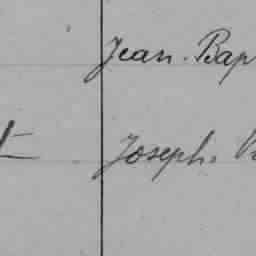 Jean. Bap
Joseph.